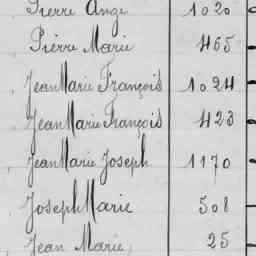 Pierre Ange 1020
Pierre Marie 465
Jean Marie François 1024
Jean Marie François 423
Jean Marie Joseph 1170
Joseph Marie 508
Jean Marie 25